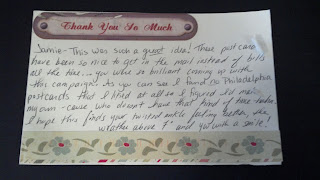 Thank You So Much
Jamie - This was such a great idea! These postcards
have been so nice to get in the mail instead of bills
all the time... you were so brilliant coming up with
this campaign. As you can see I found no Philadelphia
postcards that I liked at all so I figured I'd make
my own - cause who doesn't have that kind of time haha.
I hope this finds your twisted ankle feeling better, the
weather above 7° and you with a smile!